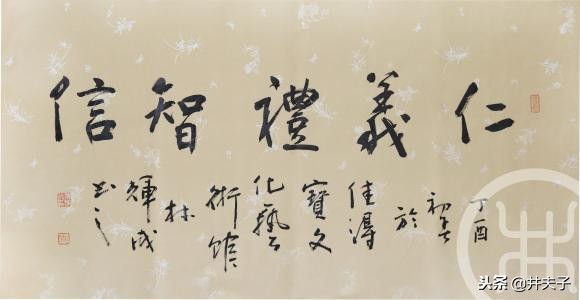 仁義禮智信
丁酉
初
於
佳淂
寶文
化藝
術館
林
輝成
书之
头条 @井夫子